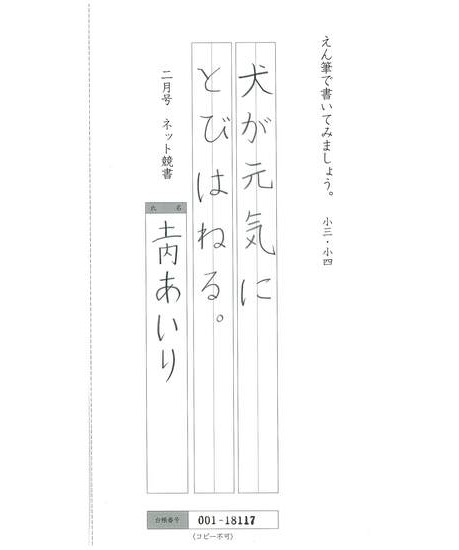 えん筆で書いてみましょう。 小三・小四
犬が元気に
とびはねる。
二月号 ネット競書
氏 名
あいり
台帳番号 001-18117
(コピー不可)